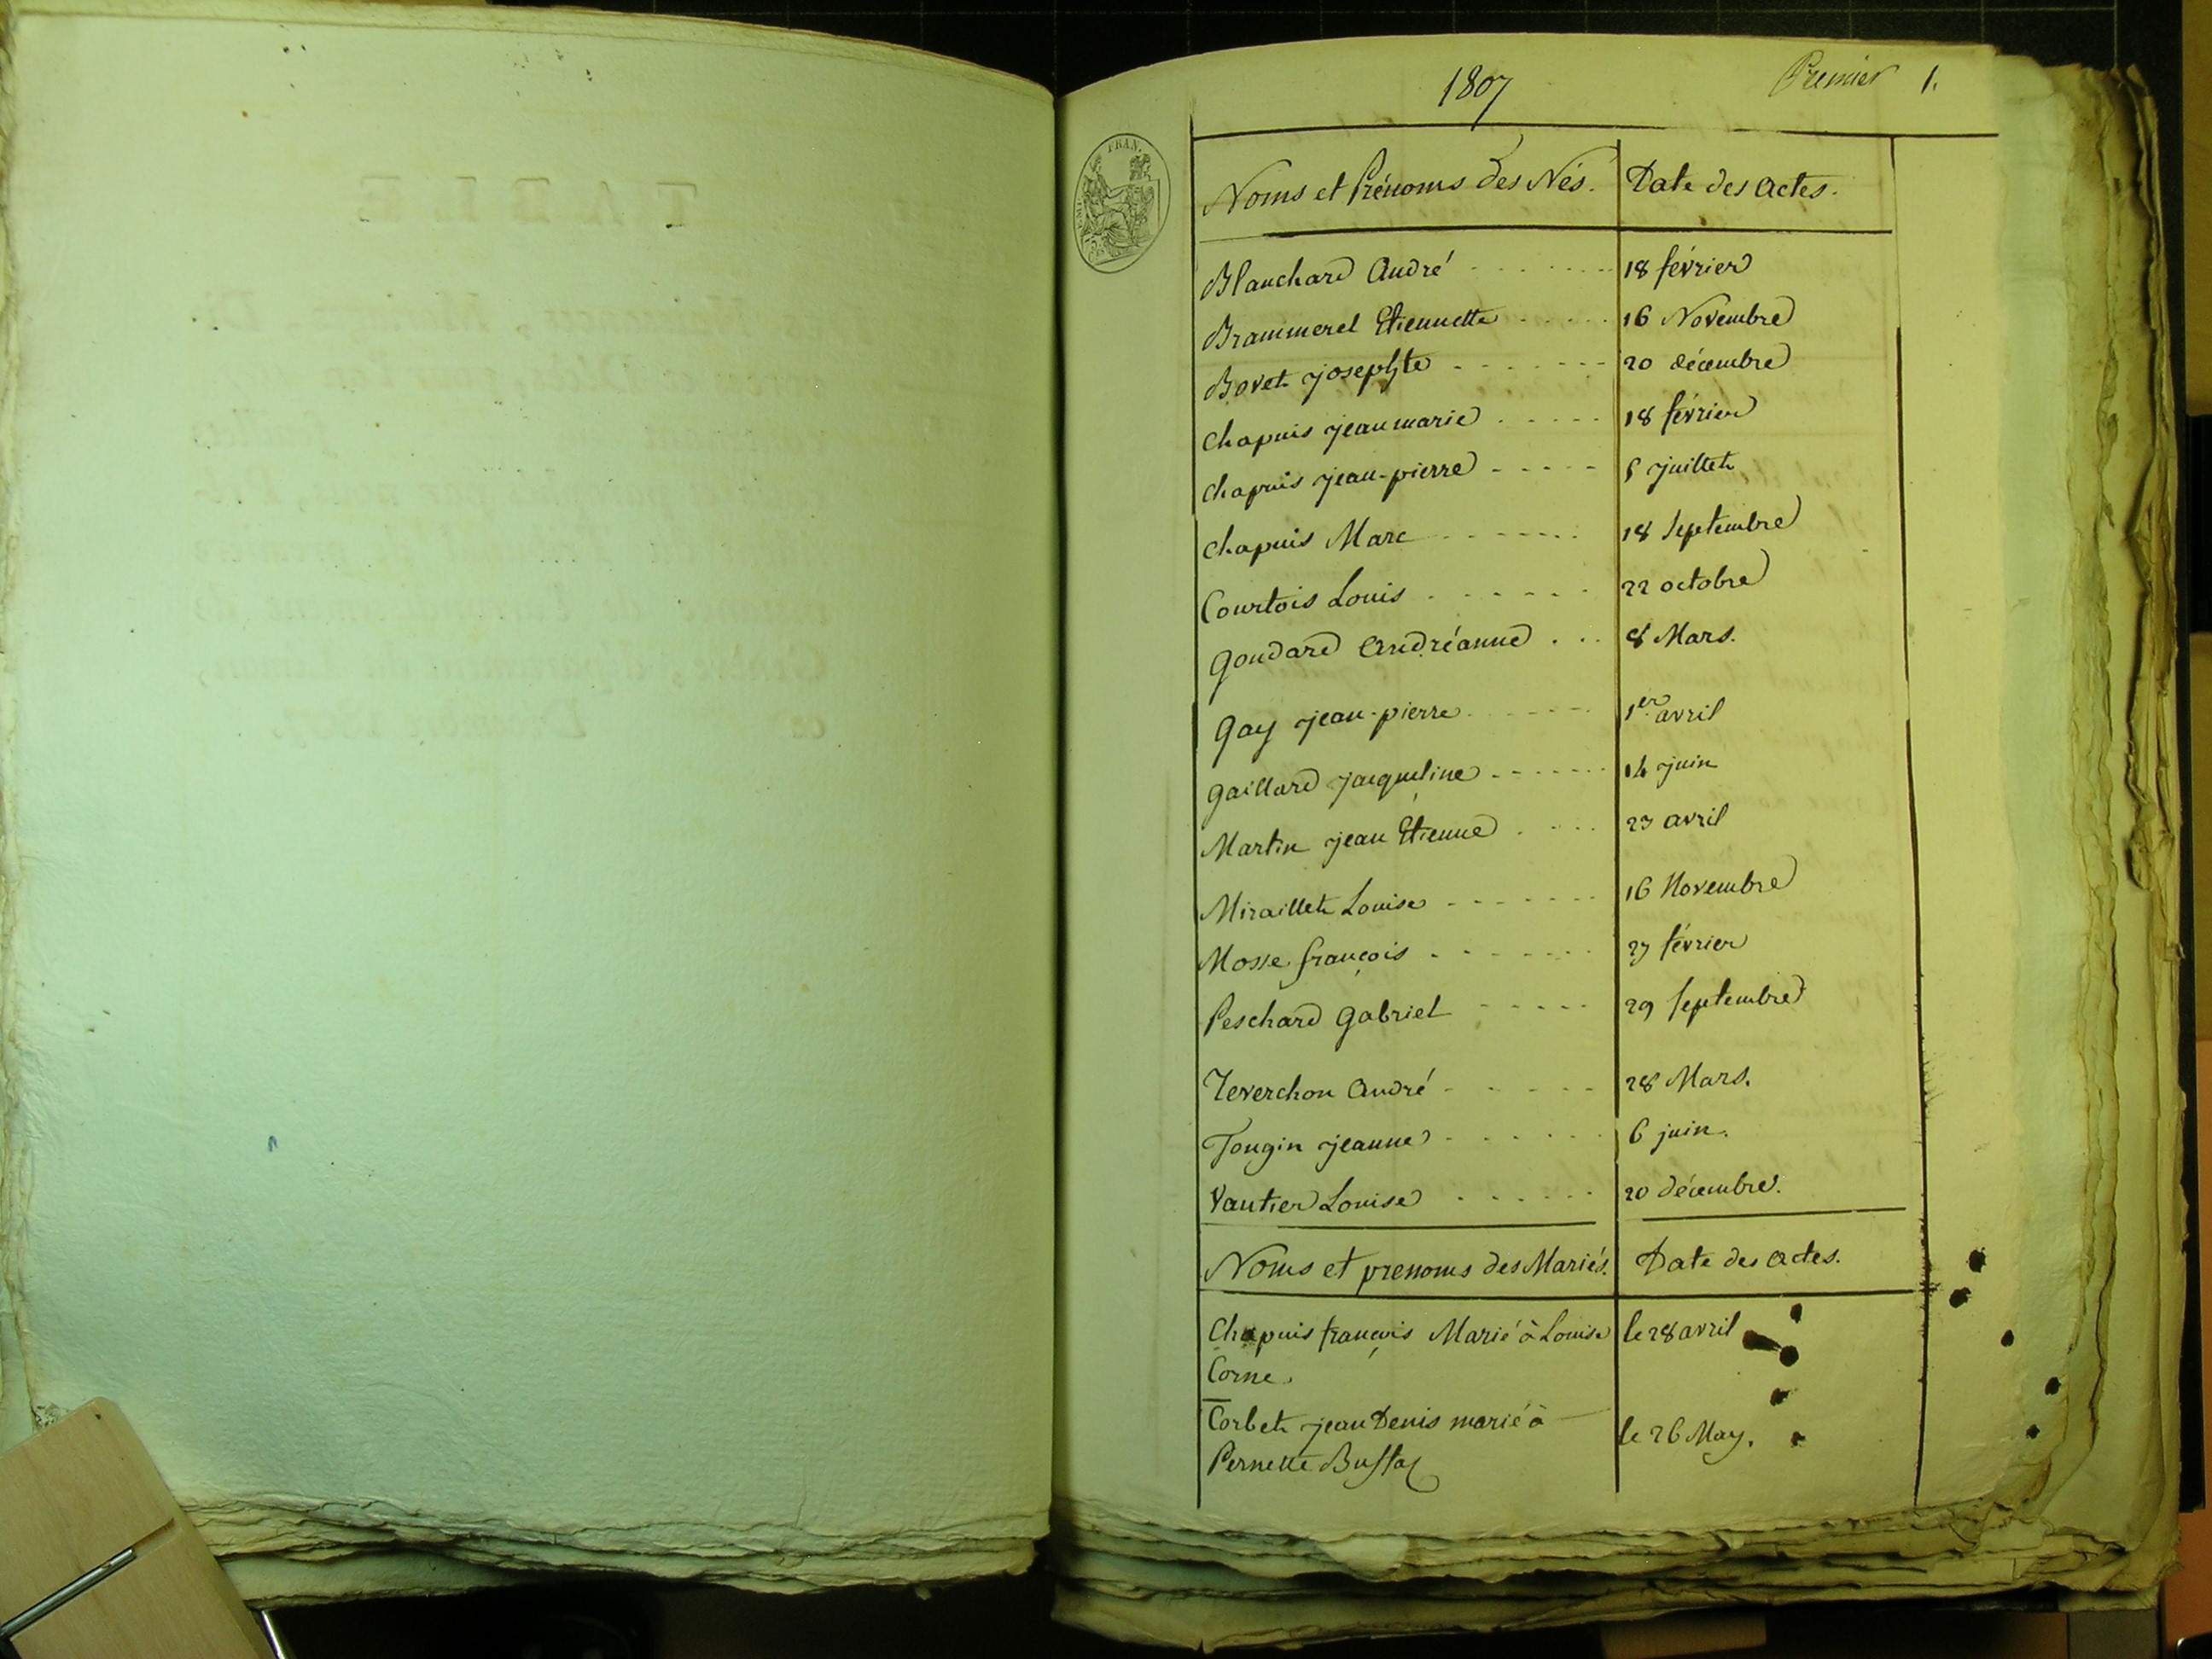 TABLE
1807 Premier 1.
FRAN.
Noms et Prénoms des Nés. Date des actes.
Blanchard André 18 février
Brammerel Etiennette 16 Novembre
Bovet josephte 20 décembre
Chapuis jean marie 18 février
Chapuis jean-pierre juillet
Chapuis Marc 18 Septembre
Courtois Louis 22 octobre
Goudard Andréanne 8 Mars.
Gay jean-pierre 1er avril
Gaillard jacqueline 14 juin
Martin jean Etienne 23 avril
Miraillet Louise 16 Novembre
Mosse françois 27 février
Peschard Gabriel 29 Septembre
Teverchon André 28 Mars.
Tougin jeanne 6 juin.
Vautier Louise 20 décembre.
Noms et prenoms des Mariés. Date des actes.
Chapuis françois Marié à Louise le 28 avril
Corne.
Corbet jean Denis marié à le 26 May.
Pernette Bussat